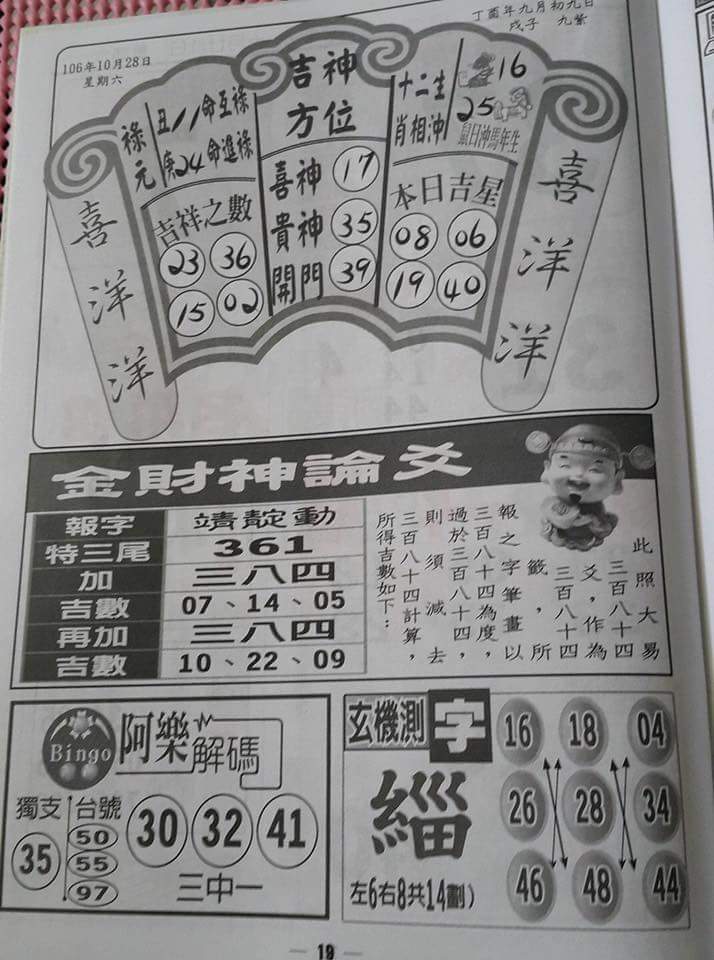 丁酉年九月初九日
戊子 九紫
106年10月28日
星期六
祿元
丑11命互祿
庚24命進祿
吉神方位
十二生肖相沖
16
25
鼠日沖馬年生
吉祥之數
23 36
15 02
喜神 17
貴神 35
開門 39
本日吉星
08 06
19 40
喜洋洋
喜洋洋
金財神論爻
報字 靖靛動
特三尾 361
加 三八四
吉數 07、14、05
再加 三八四
吉數 10、22、09
此照大易
三百八十四
爻，作為
三百八十四
籤，所
報之字筆畫以
三百八十四為度，
過於三百八十四，
則須減去
三百八十四計算，
所得吉數如下：
Bingo
阿樂解碼
獨支
35
台號
50
55
97
30 32 41
三中一
玄機測字
緇
左6右8共14劃)
16 18 04
26 28 34
46 48 44
19